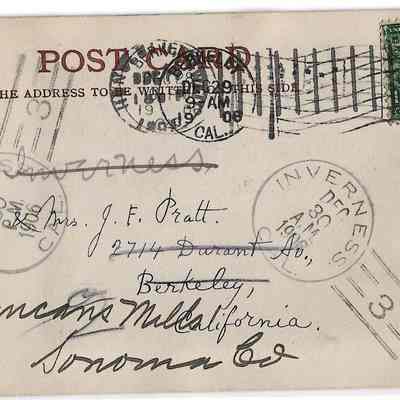 POST CARD
HE ADDRESS TO BE WRITTEN ON THIS SIDE.
BERKELEY
DEC 29
AM
1906
CAL.
3
Inverness
INVERNESS
DEC
30
A.M.
1906
CAL
P.M.
1906
& Mrs. J. F. Pratt.
2714 Durant Av.,
Berkeley,
uncans Mills
California.
Sonoma Co
3